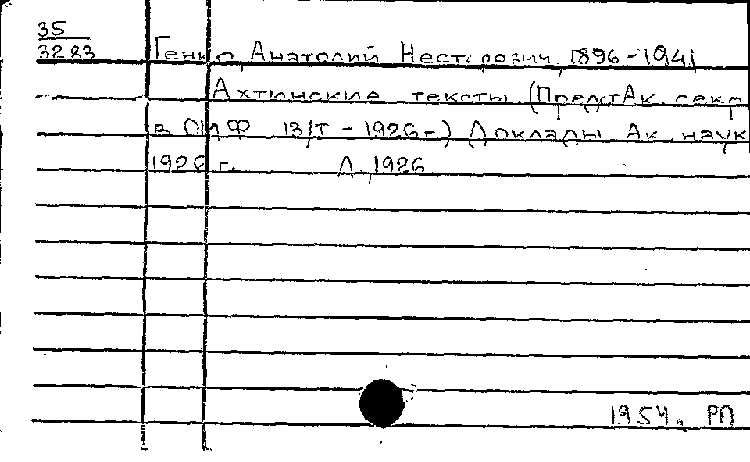 35
3283
Генко, Анатолий Несторович, 1896-1941
Ахтинские тексты (Предст Ак. секр.
в ОИФ 13/I - 1926-) Доклады Ак. наук
1926 г. Л., 1926
1954, РП